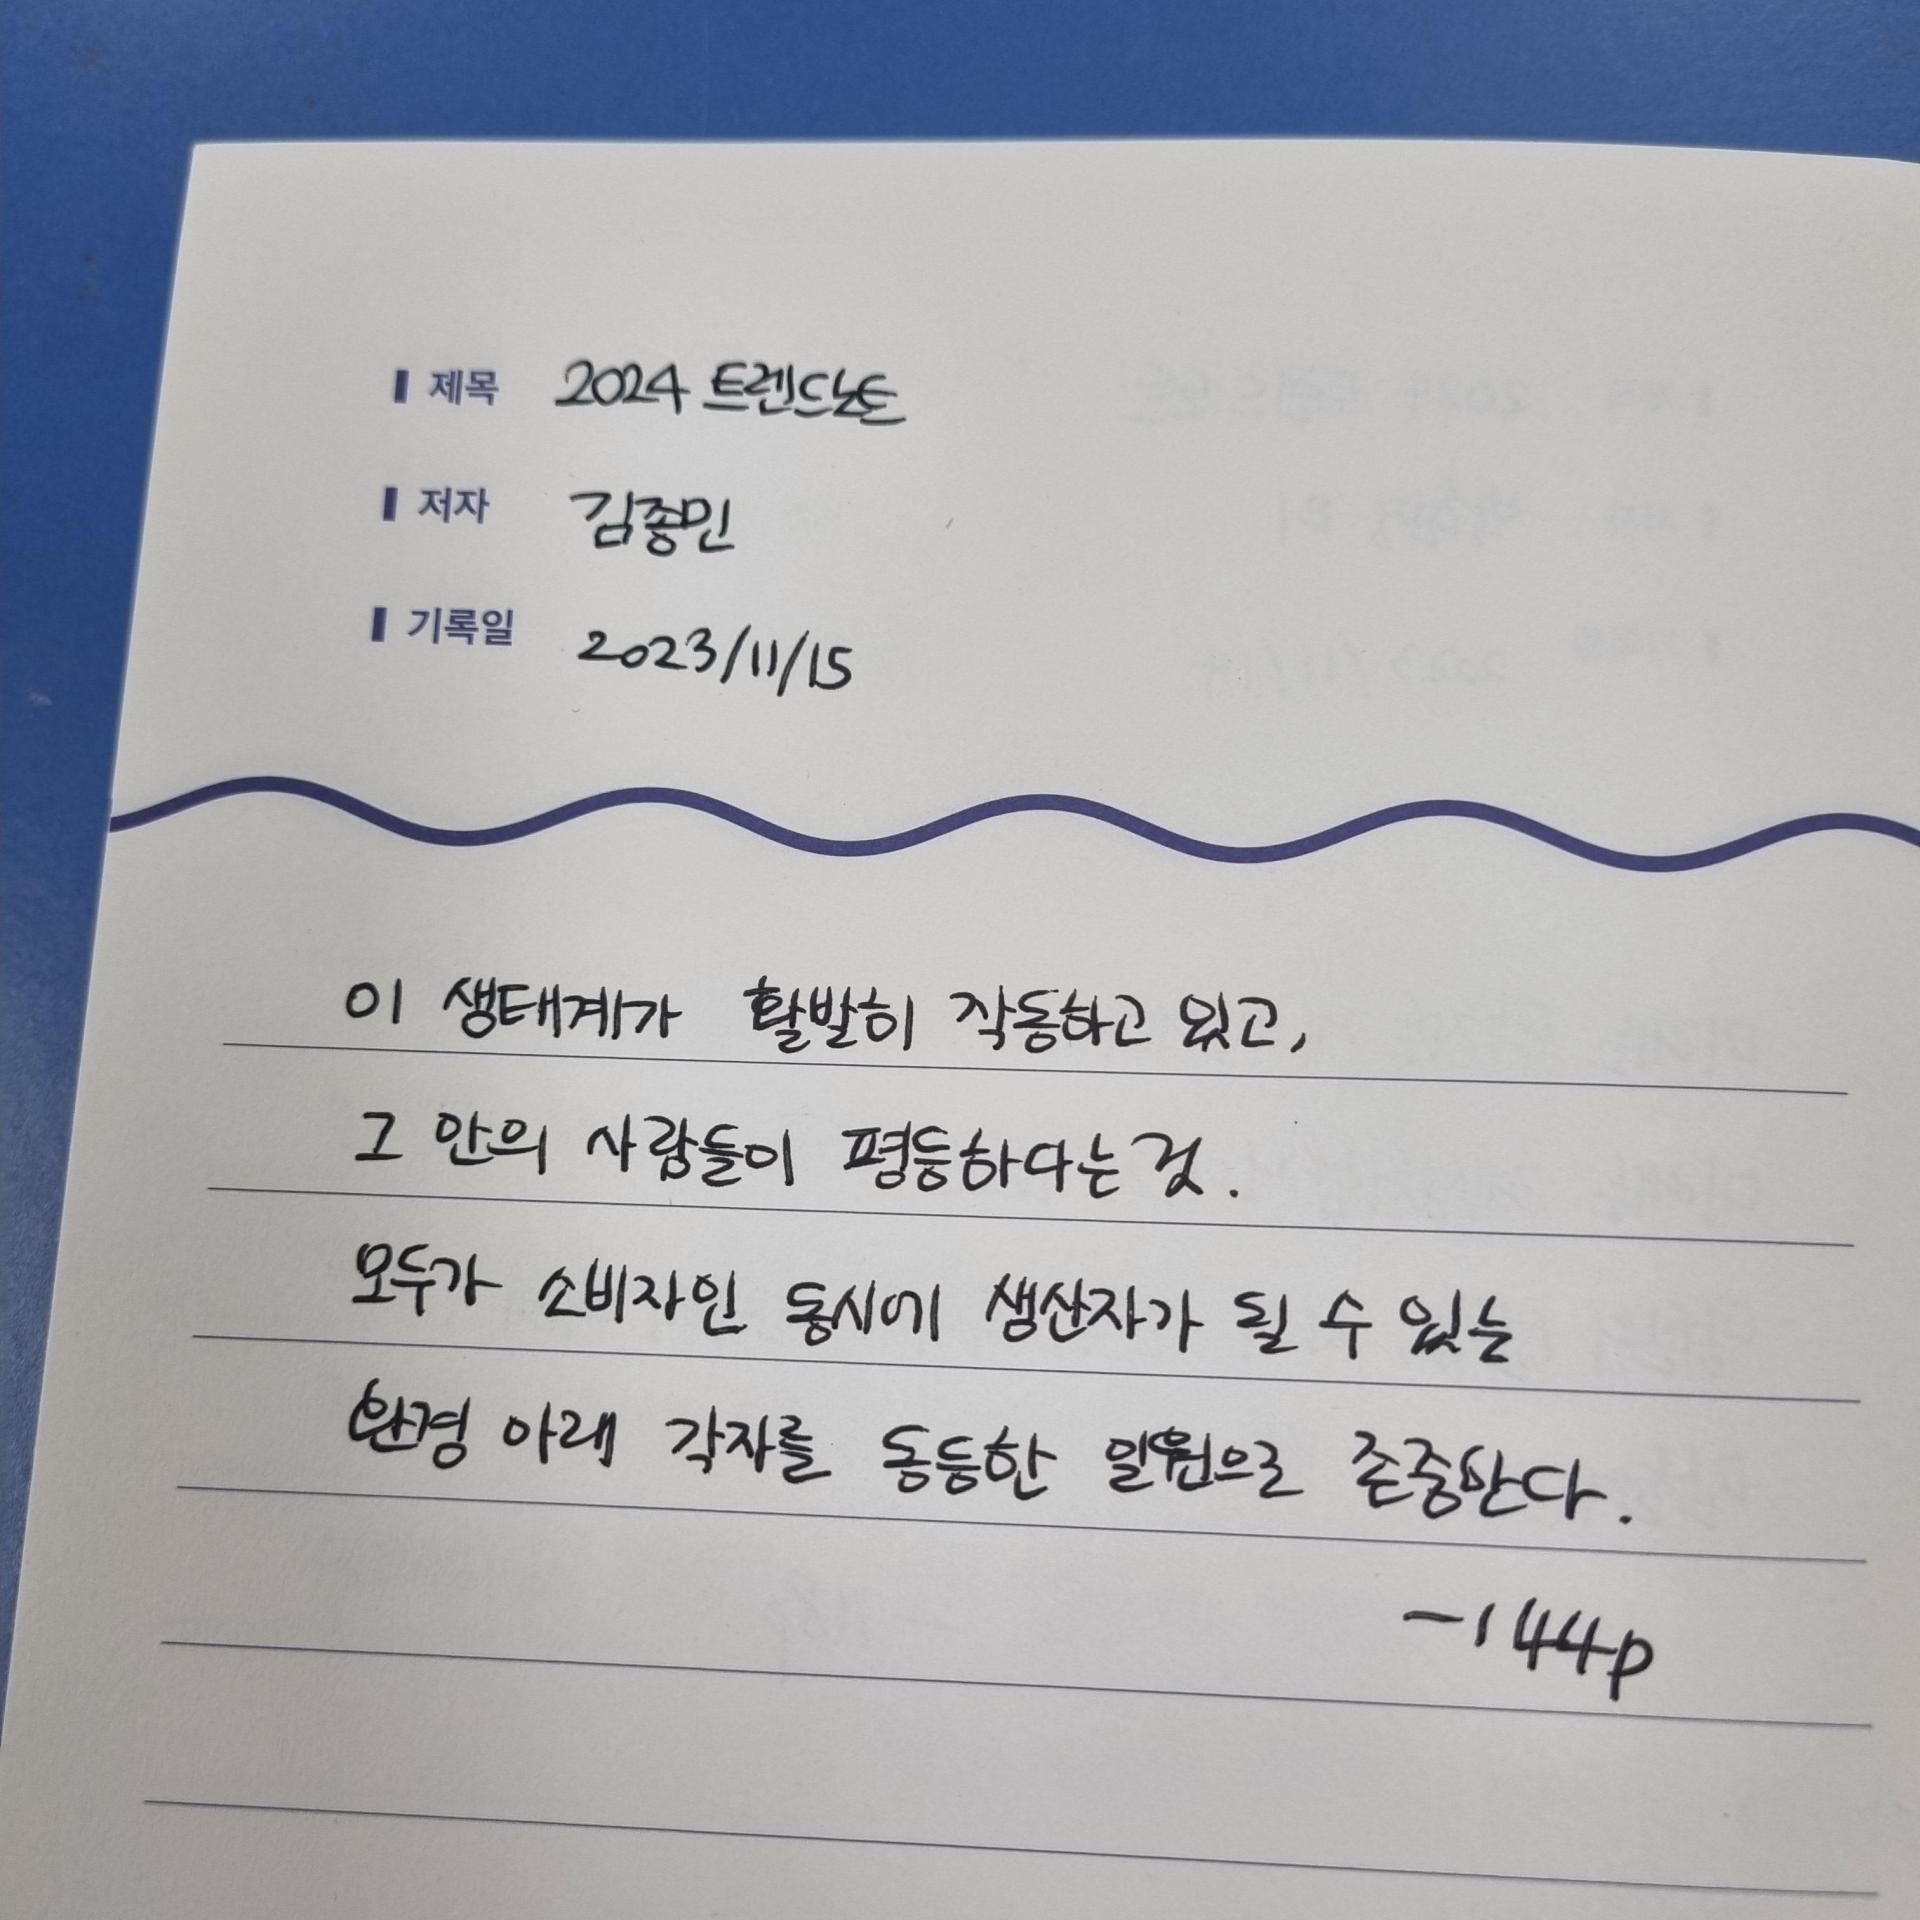 제목 2024 트렌드노트
저자 김종민
기록일 2023/11/15
이 생태계가 활발히 작동하고 있고,
그 안의 사람들이 평등하다는 것.
모두가 소비자인 동시에 생산자가 될 수 있는
환경 아래 각자를 동등한 일원으로 존중한다.
-144p